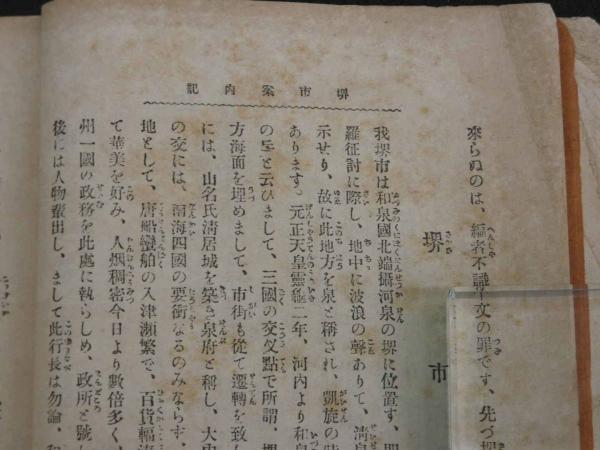 堺市案内記
來らぬのは、編者不識一文の罪です、先づ堺
堺市
我堺市は和泉國北端攝河泉の堺に位置す、
羅征討に際し、地中に波浪の聲ありて、淸泉
示せり、故に此地方を泉と稱され、凱旋の
あります。元正天皇靈龜二年、河内より和泉
の㞢と云ひまして、三國の交叉點で所謂、
方海面を埋めまして、市街も從て遷轉を致し
には、山名氏淸居城を築き泉府と稱し、大内
の交には、濵海四國の要衝なるのみならず、
地として、唐船蠻舶の入津瀕繁で、百貨輻湊
て華美を好み、人烟稠密今日より數倍多く、
州一國の政務を此處に執らしめ、政所と號し
後には人物輩出し、まして此行長は勿論、